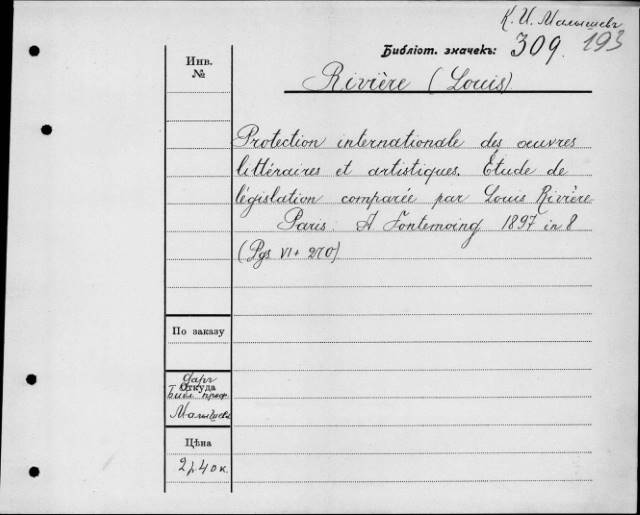 К. И. Малышевъ
Библіот. значекъ: 309. 193
Инв. №
Rivière (Louis)
Protection internationale des œuvres
littéraires et artistiques. Étude de
législation comparée par Louis Rivière
Paris. A Fontemoing 1897 in 8
(Pgs VI + 270)
По заказу
Даръ
Откуда
Библ. проф.
Малышева
Цѣна
2 р. 40 к.